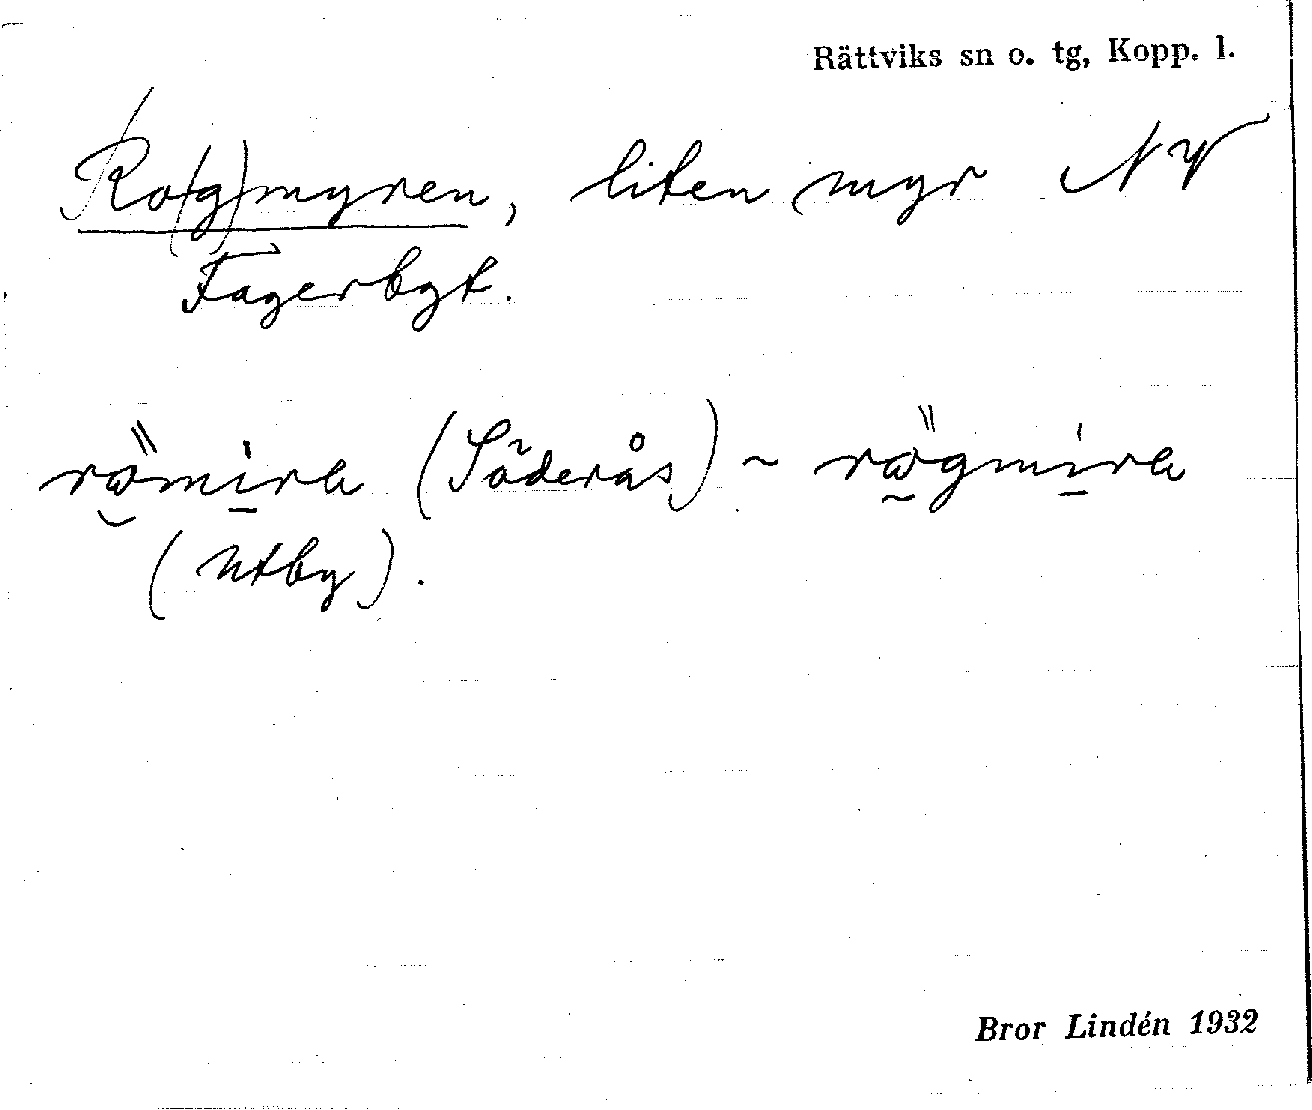 Rättviks sn o. tg, Kopp. l.
Ro(g)myren, liten myr NV
Fagerbgt.
(Söderås) ~
(Utby).
Bror Lindén 1932